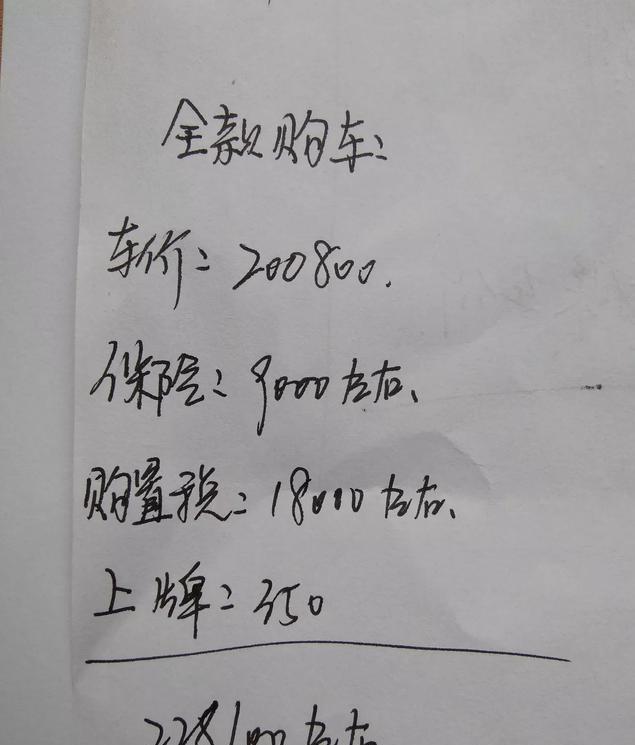 全款购车:
车价: 200800.
保险: 9000左右、
购置税: 18000左右、
上牌: 350
228100左右